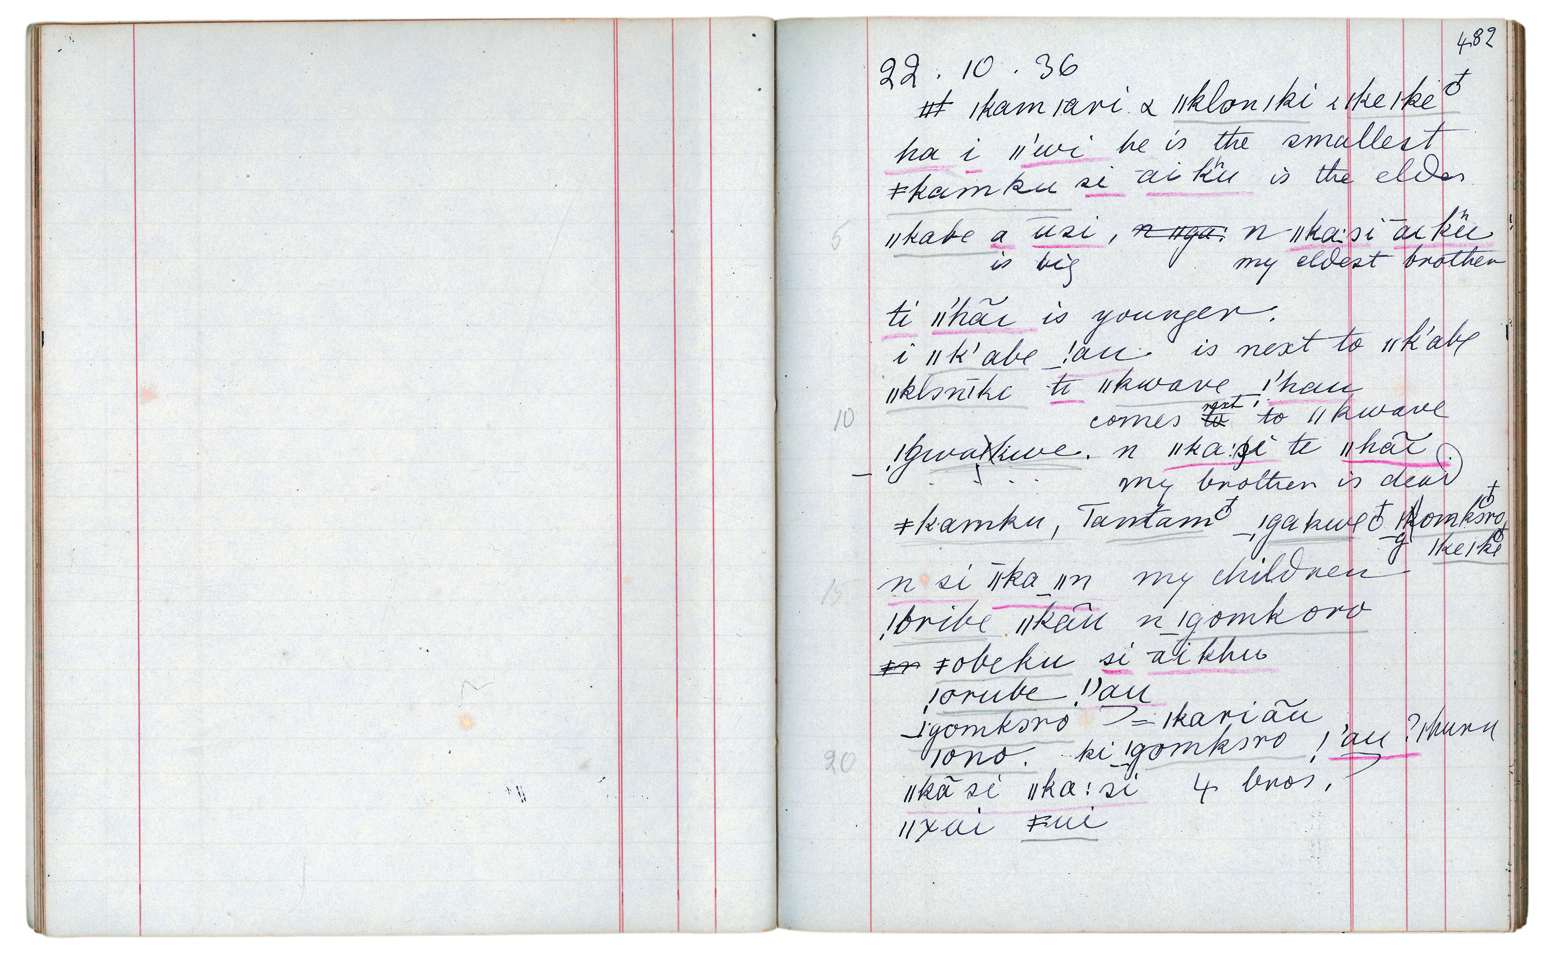 482
22 . 10 . 36
ǀkamǀari & ǁklonǀki & ǀkeǀke ♂
ha i ǁ'wi he is the smallest
ǂkamku si āikün is the elder
5 ǁkabe a ūsi, n ǁga: n ǁka:si āikün
is big my eldest brother
ti ǁ'hãi is younger.
i ǁk'abe !au is next to ǁk'abe
ǁklɔnike te ǁkwave !'hau
10 comes next to ǁkwave
!gwaǀkwe. n ǁka:si te ǁhãi
my brother is dead
ǂkamku, Tantam ♂ !gakwe ♂ !gomkɔro
ǀkeǀke
15 n si ǁka ǁn my children
!oribe ǁkãu n !gomkoro
ǂobeku si āikhu
!orube !'au
!gomkɔro = ǀkariãu
20 ǀono. ki !gomkɔro !'au ? ǀhuru
ǁkā si ǁka:si 4 bros,
ǁxai ǂui